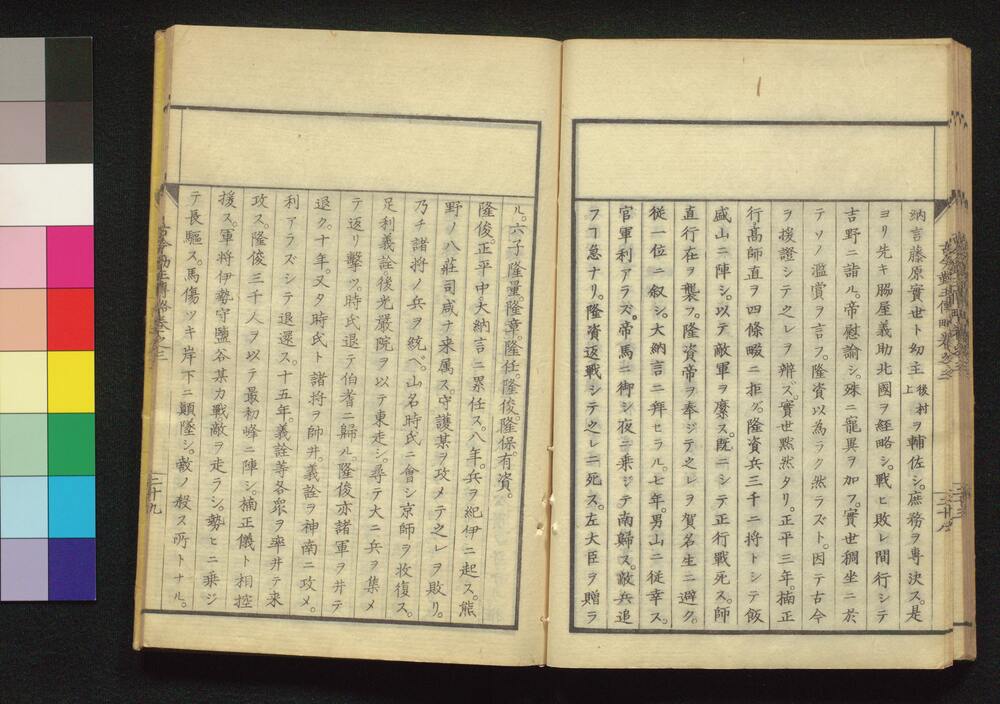 納言藤原實世ト幼主後村上ヲ輔佐シ。庶務ヲ專決ス。是
ヨリ先キ脇屋義助北國ヲ經略シ。戰ヒ敗レ間行シテ
吉野ニ詣ル。帝慰諭シ。殊ニ寵異ヲ加フ。實世稠坐ニ於
テソノ濫賞ヲ言フ。隆資以為ラク然ラズト。因テ古今
ヲ援證シテ之レヲ辨ズ。實世黙然タリ。正平三年。楠正
行髙師直ヲ四條畷ニ拒グ。隆資兵三千ニ将トシテ飯
盛山ニ陣シ。以テ敵軍ヲ縻ス。既ニシテ正行戰死ス。師
直行在ヲ襲フ。隆資帝ヲ奉ジテ之レヲ賀名生ニ避ク。
從一位ニ叙シ。大納言ニ拜セラル。七年。男山ニ従幸ス。
官軍利アラズ。帝馬ニ御シ夜ニ乗ジテ南歸ス。敵兵追
フコ急ナリ。隆資返戰シテ之レニ死ス。左大臣ヲ贈ラ
ル。六子隆量。隆章。隆任。隆俊。隆保。有資。
隆俊。正平中大納言ニ累任ス。八年。兵ヲ紀伊ニ起ス。熊
野ノ八莊司咸ナ来属ス。守護某ヲ攻メテ之レヲ敗リ。
乃チ諸将ノ兵ヲ統ベ。山名時氏ニ會シ京師ヲ收復ス。
足利義詮。後光嚴院ヲ以テ東走シ。尋テ大ニ兵ヲ集メ
テ返リ擊ツ。時氏退テ伯耆ニ歸ル。隆俊亦諸軍ヲ井テ
退ク。十年。又タ時氏ト諸将ヲ師井。義詮ヲ神南ニ攻メ。
利アラズシテ退還ス。十五年。義詮等各衆ヲ率井テ来
攻ス。隆俊三千人ヲ以テ最初峰ニ陣シ。楠正儀ト相控
援ス。軍将伊勢守鹽谷某力戰敵ヲ走ラシ。勢ヒニ乗ジ
テ長驅ス。馬傷ツキ岸下ニ顛墜シ。敵ノ殺ス所トナル。
二十九